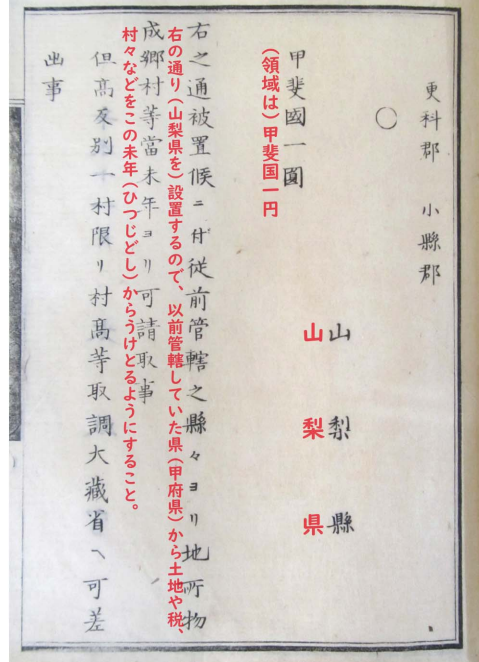 更科郡　小縣郡
○
山梨縣
山梨県
甲斐國一圓
（領域は）甲斐国一円
右之通被置候ニ付従前管轄之縣々ヨリ地所物
右の通り（山梨県を）設置するので、以前管轄していた県（甲府県）から土地や税、
成郷村等當未年ヨリ可請取事
村々などをこの未年（ひつじどし）からうけとるようにすること。
但高反別一村限リ村高等取調大藏省ヘ可差
出事